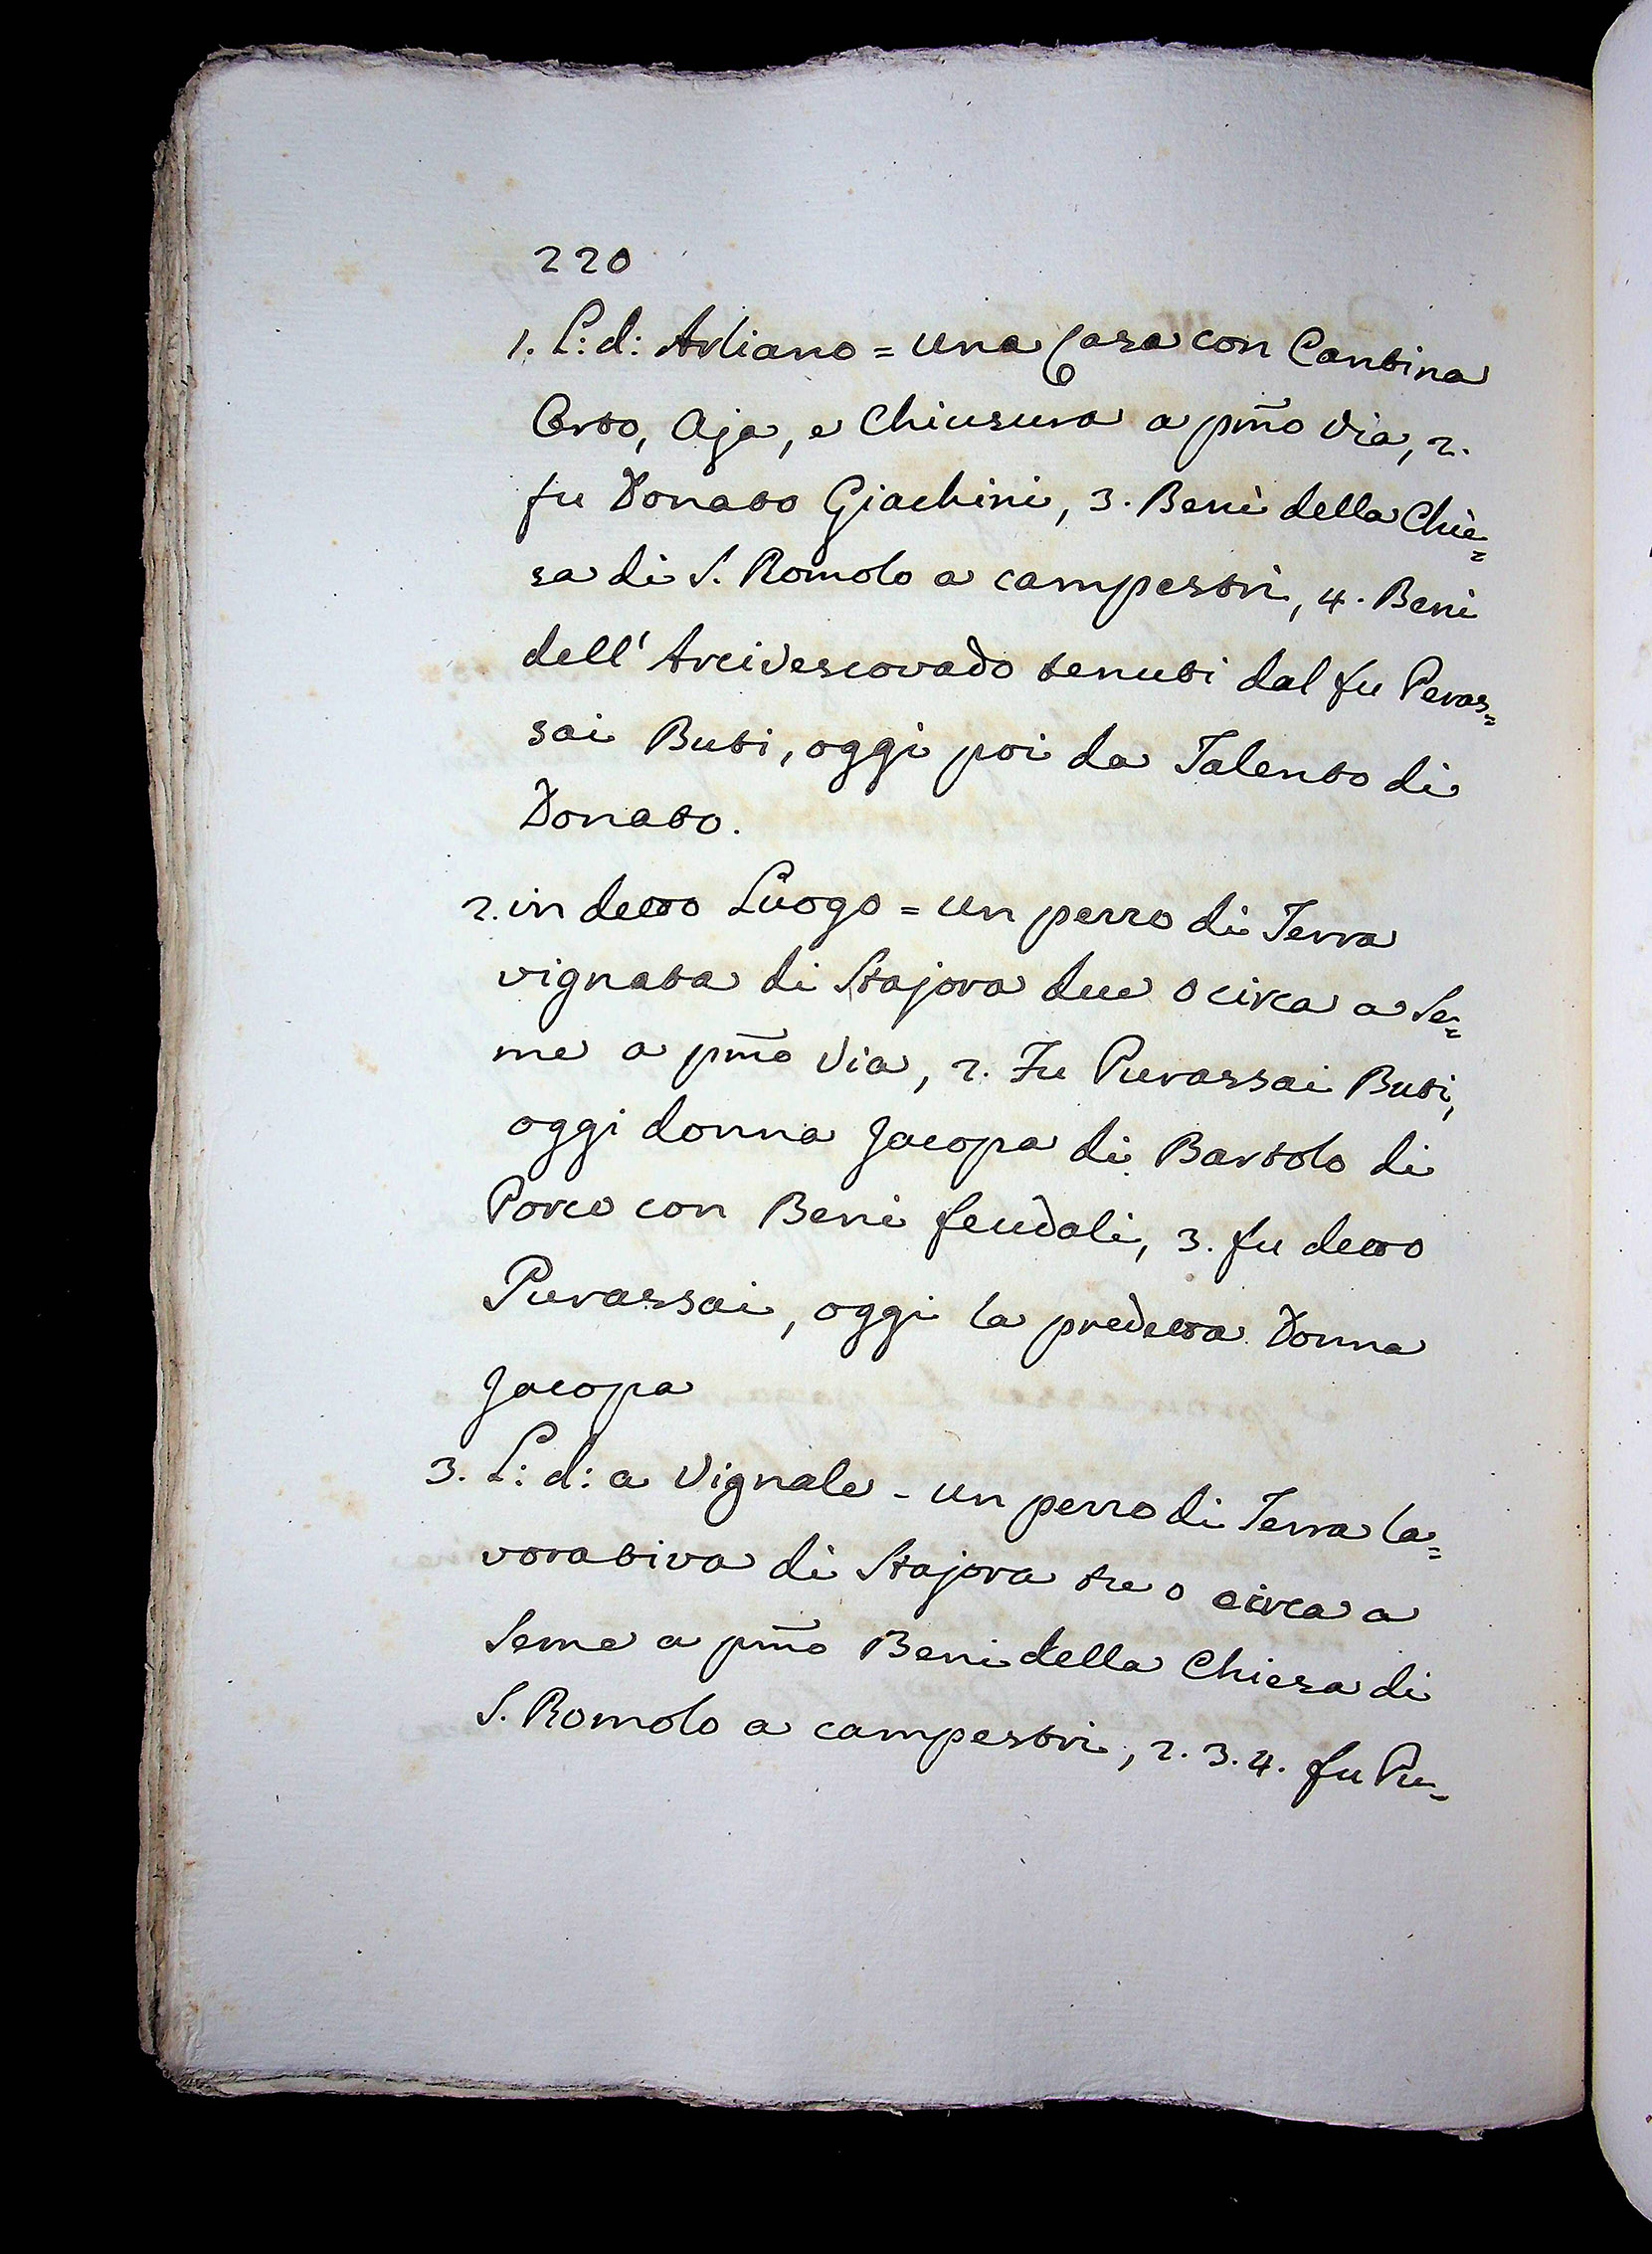 220
1. L: d: Arliano = una Casa con Cantina
Orto, Aja, e Chiusura a pm̃o Via, 2.
fu Donato Giachini, 3. Beni della Chie=
sa di S. Romolo a campestri, 4. Beni
dell' Arcivescovado tenuti dal fu Peras=
sai Buti, oggi poi da Talento di
Donato.
2. in detto Luogo = un pezzo di Terra
vignata di Stajora due o circa a Se=
me a pm̃o Via, 2. Fu Purassai Buti,
oggi donna Jacopa di Bartolo di
Porco con Beni feudali, 3. fu detto
Purassai, oggi la predetta Donna
Jacopa
3. L: d: a Vignale - un pezzo di Terra la=
vorativa di Stajora tre o circa a
Seme a pm̃o Beni della Chiesa di
S. Romolo a campestri, 2. 3. 4. fu Pu=